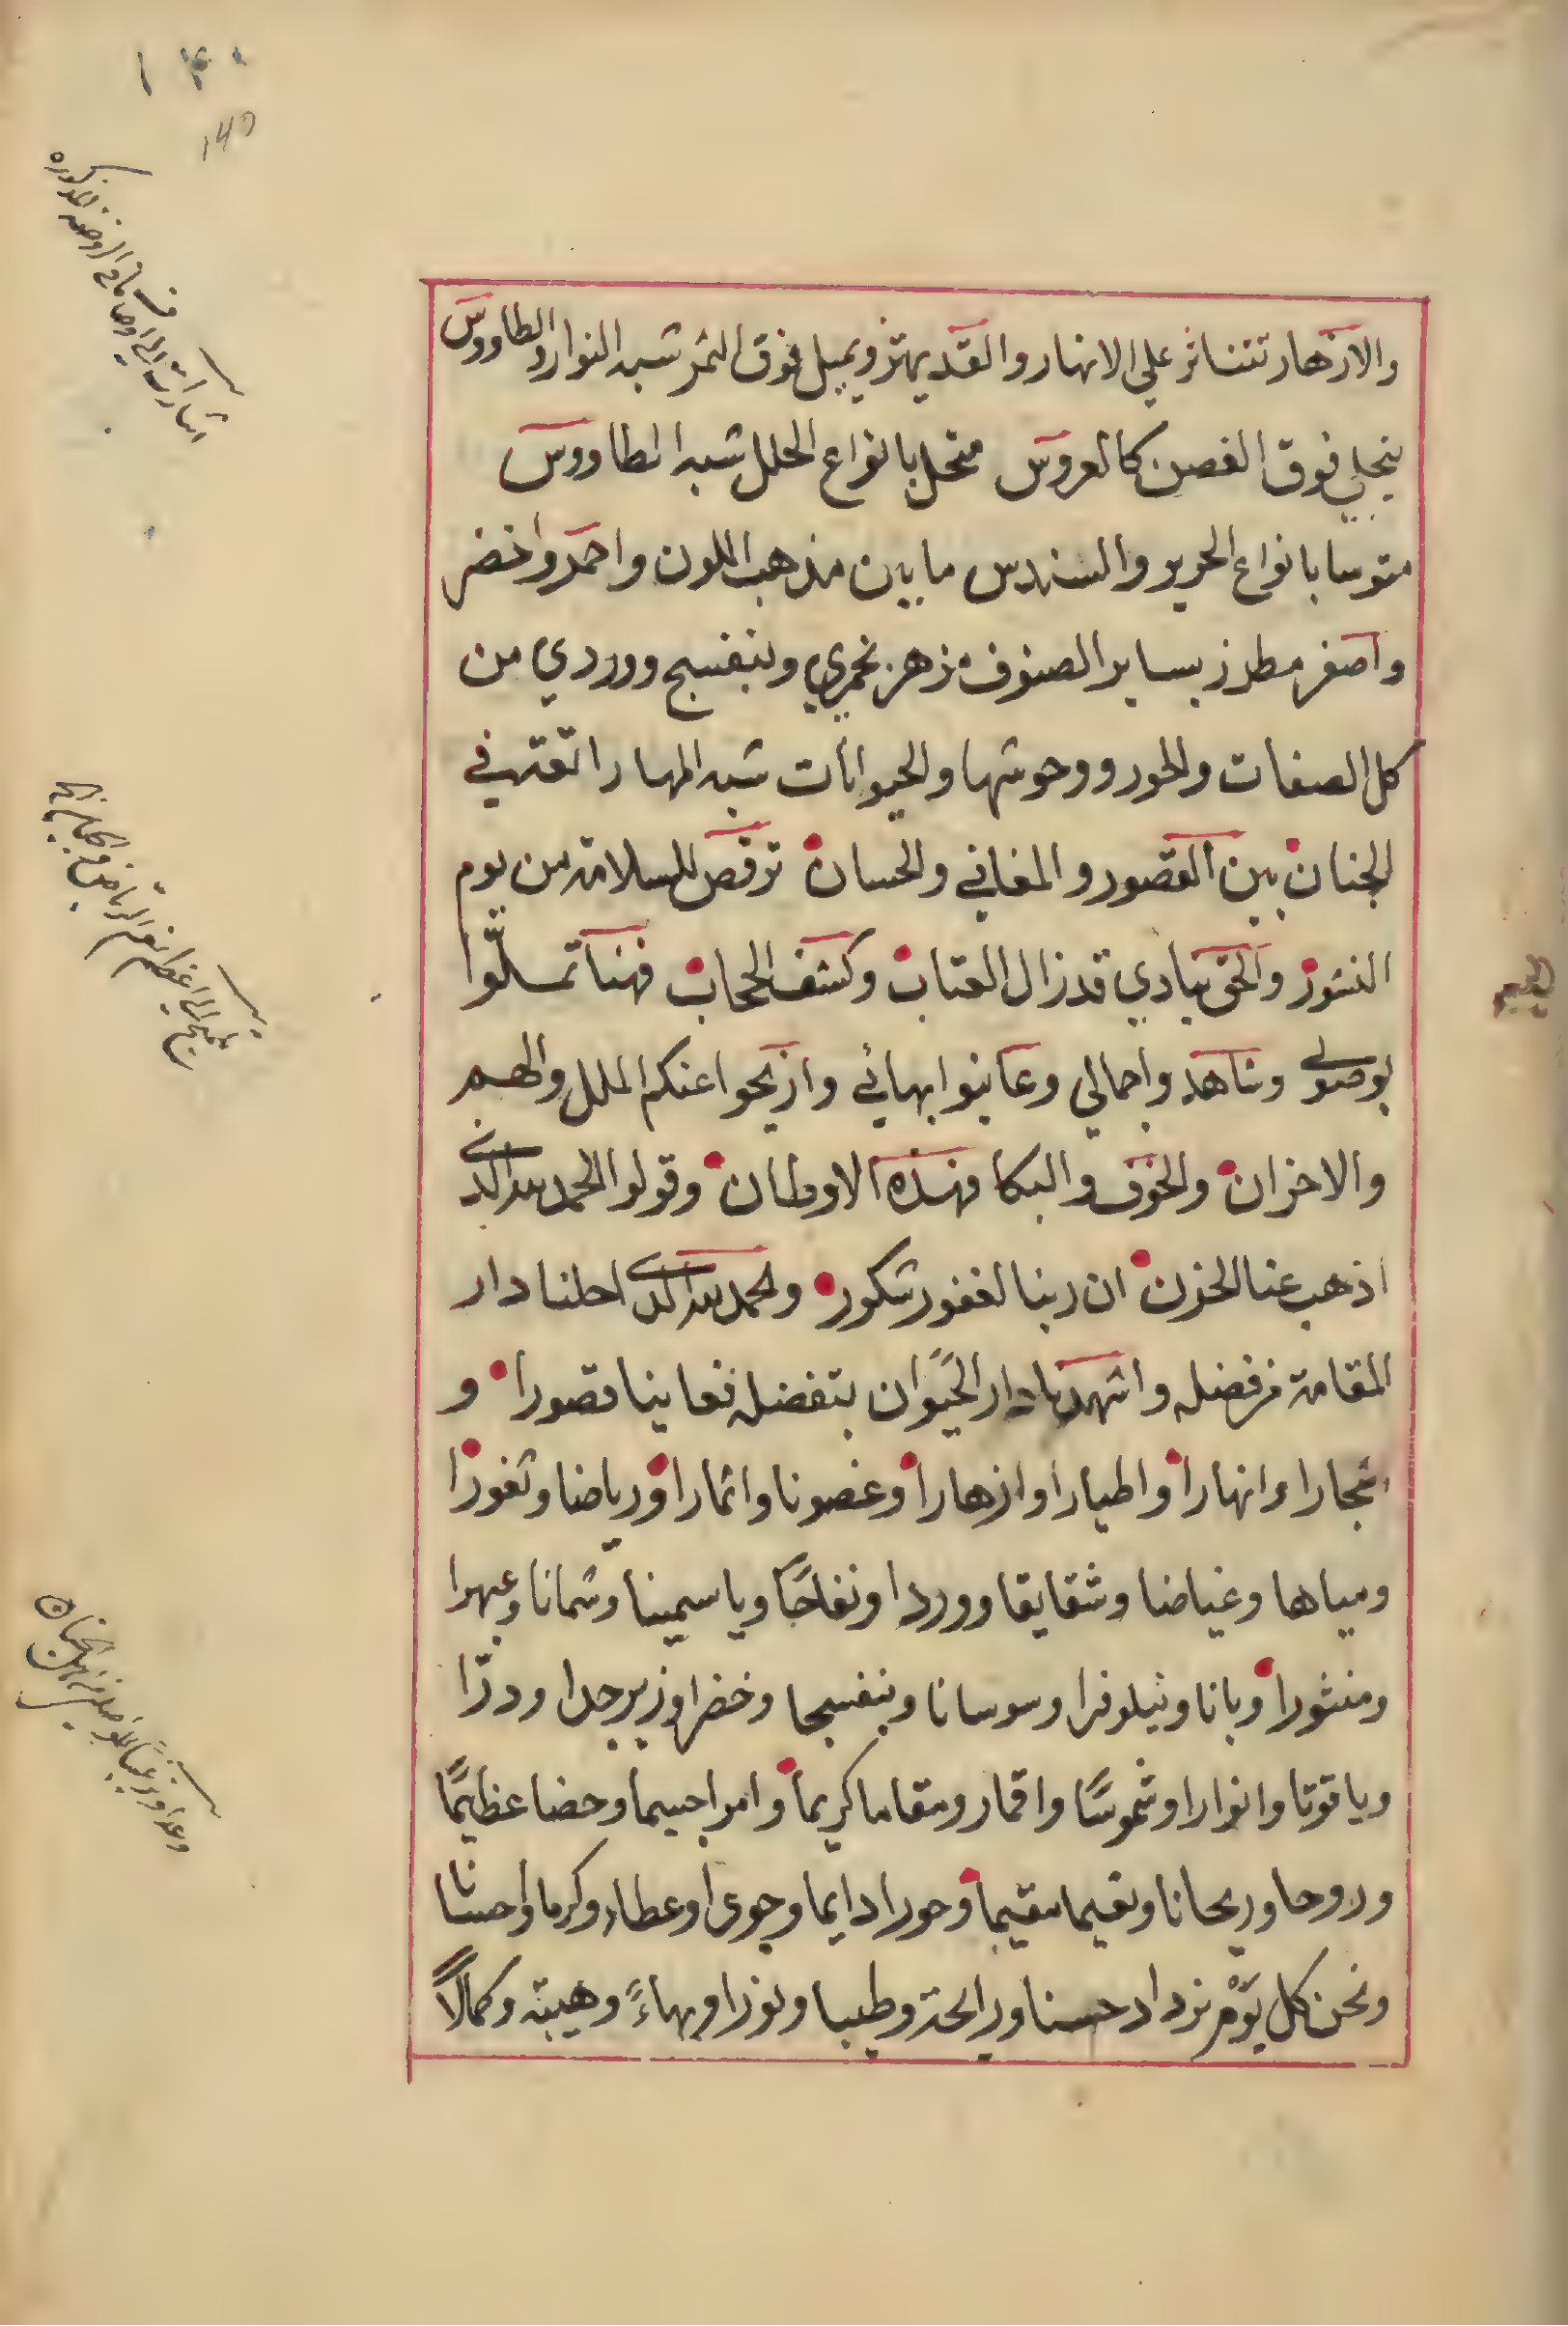 والازهار تتناثر علي الانهار والقد يهتز ويميل فوق الثمر شبه النوار والطاووس
ينجلي فوق الغصن كالعروس متحل بانواع الحلل شبه الطاووس
متوسا بانواع الحرير والسندس ما بين مذهب اللون واحمر واخضر
واصفر مطرز بساير الصنوف زهر خمري وبنفسج ووردي من
كل الصفات والحور ووحوشها والحيوانات شبه المها راتعة في
الجنان بين القصور والمغاني والحسان ترقص للسلامة من يوم
النشور والحق ينادي قد زال العتاب وكشف الحجاب فهنا تملوا
بوصولي وشاهدوا جمالي وعاينوا بهائي وازيحوا عنكم الملل والهم
والاحزان والخوف والبكا فهذه الاوطان وقولوا الحمد لله الذي
اذهب عنا الحزن ان ربنا لغفور شكور والحمد لله الذي احلنا دار
المقامة من فضله واشهدنا دار الحيوان بتفضله فعاينا قصورا و
اشجارا وانهارا واطيارا وازهارا وغصونا واثمارا ورياضا وثغورا
ومياها وغياضا وشقايقا ووردا وتفاحًا وياسمينا وشمانا وعبهرا
ومنثورا وبانا ونيلوفرا وسوسانا وبنفسجا وخضرا وزبرجدا ودرّا
وياقوتا وانوارا وشموسًا واقمار ومقاما كريما وامرا جسيما وحضا عظيمًا
وروحا وريحانا ونعيما مقيما وحورا دايما وجودا وعطاء وكرما واحسانا
ونحن كل يوم نزداد حسنا ورايحة وطيبا ونورا وبهاءً وهيبة وكمالاً